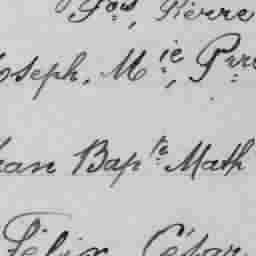 Fois, Pierre
Joseph, Mie, Pierre
Jean Bapte Math
Félix César